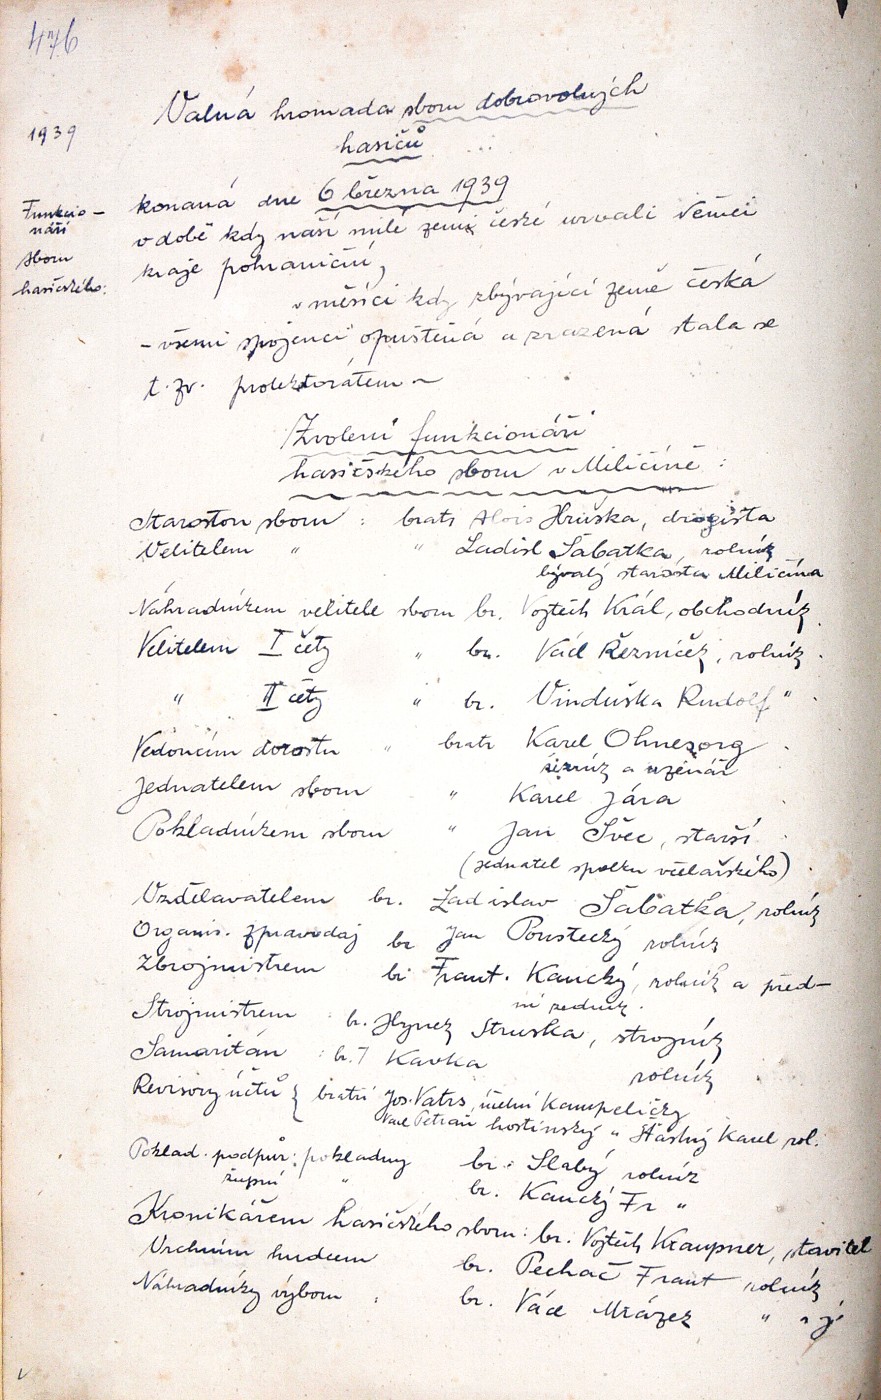 476
Valná hromada sboru dobrovolných
hasičů
1939
konaná dne 6 března 1939
Funkcio-
náři
sboru
hasičského:
v době kdy naší milé zemi české urvali Němci
kraje pohraniční,
v měsíci kdy zbývající země česká
- všemi spojenci opuštěná a zrazená stala se
t. zv. protektorátem -
Zvolení funkcionáři
hasičského sboru v Miličíně :
Starostou sboru : bratr Alois Hruška, drogista
Velitelem " " Ladisl Šabatka, rolník
bývalý starosta Miličína
Náhradníkem velitele sboru br. Vojtěch Král, obchodník
Velitelem I čety " br. Václ Řezníček, rolník.
" II čety " br. Vinduška Rudolf " .
Vedoucím dorostu " bratr Karel Ohnesorg .
řezník a uzenář
Jednatelem sboru " Karel Jára
Pokladníkem sboru " Jan Švec, starší
(jednatel spolku včelařského) .
Vzdělavatelem br. Ladislav Šabatka, rolník
Organis. zpravodaj br Jan Poustecký rolník
Zbrojmistrem br Frant. Kaucký, rolník a před-
ní zedník.
Strojmistrem br. Hynek Struska, strojník
Samaritán : br. J Kavka rolník
Revisory účtů { bratři Jos. Vatrs, účetní Kampeličky
Petran hostinský " Šťastný Karel rol.
Poklad. podpůr. pokladny br. Slabý rolník
župní " br. Kaucký Fr "
Kronikářem hasičského sboru: br. Vojtěch Kraupner, stavitel
Vrchním hudcem br. Pechač Frant rolník
Náhradníky výboru : br. Václ Mrázek " a j.